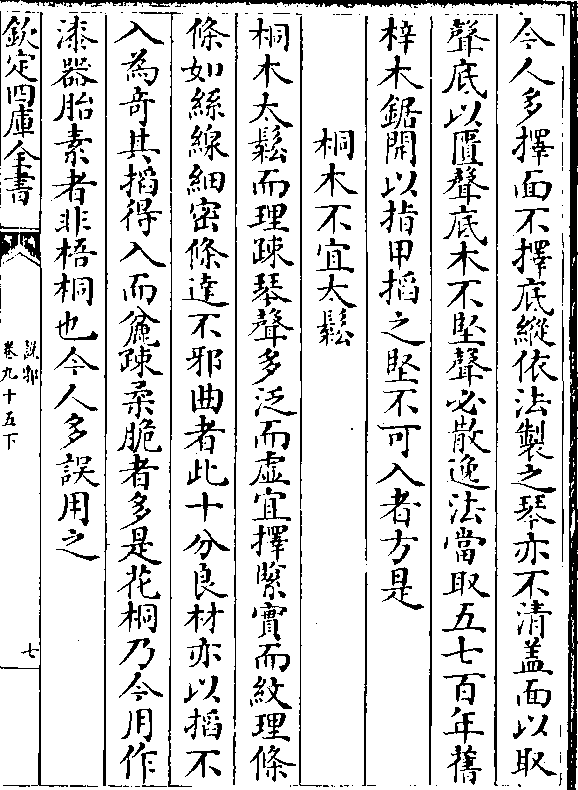 今人多擇面不擇底縱依法製之琴亦不清盖面以取
聲底以匱聲底木不堅聲必散逸法當取五七百年舊
梓木鋸開以指甲搯之堅不可入者方是
桐木不宜太鬆
桐木太鬆而理疎琴聲多泛而虚宜擇緊實而紋理條
條如絲線細密條達不邪曲者此十分良材亦以搯不
入為奇其搯得入而麄疎柔脆者多是花桐乃今用作
漆器胎素者非梧桐也今人多誤用之
欽定四庫全書
說郛
卷九十五下
七